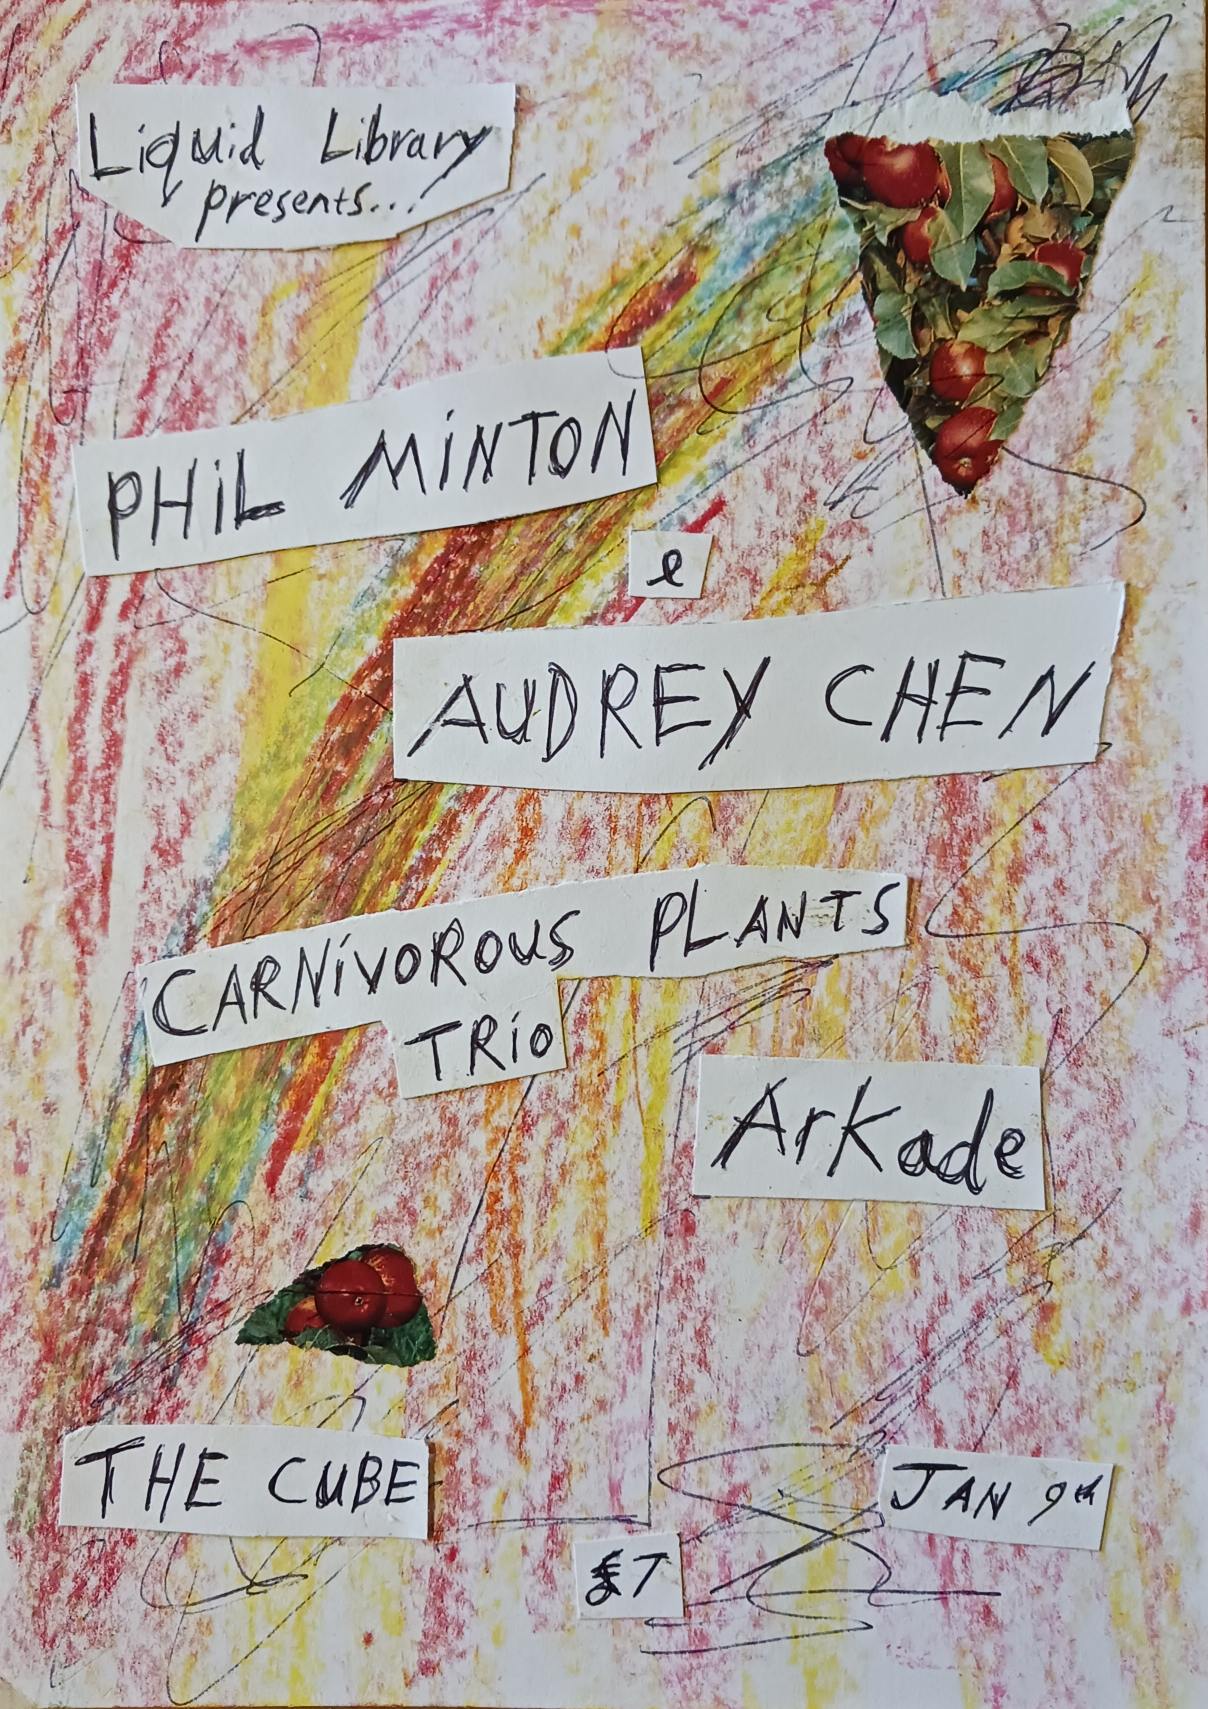 Liquid Library
presents...
PHIL MINTON
e
AUDREY CHEN
CARNIVOROUS PLANTS
TRIO
Arkade
THE CUBE
JAN 9th
£7